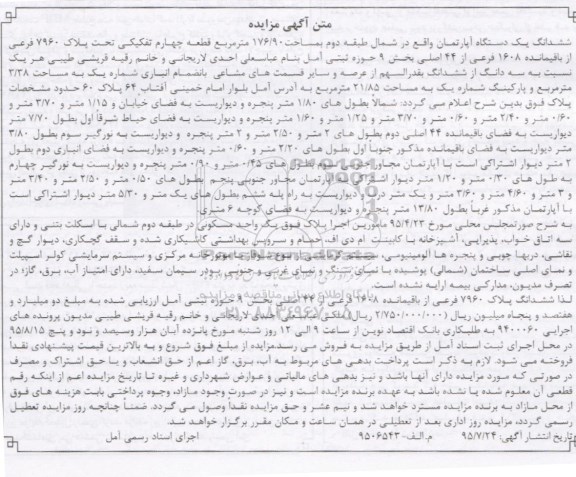 متن آگهی مزایده
ششدانگ یک دستگاه آپارتمان واقع در شمال طبقه دوم بمساحت ۱۷۶/۹۰ مترمربع قطعه چهارم تفکیکی تحت پلاک ۷۹۶۰ فرعی
از باقیمانده ۱۶۰۸ فرعی از ۴۴ اصلی بخش ۹ حوزه ثبتی آمل بنام عباسعلی احدی لاریجانی و خانم رقیه قریشی طیبی هر یک
نسبت به سه دانگ از ششدانگ بقدرالسهم از عرصه و سایر قسمت های مشاعی بانضمام انباری شماره یک به مساحت ۳/۳۸
مترمربع و پارکینگ شماره یک به مساحت ۲۱/۸۵ مترمربع به آدرس آمل بلوار امام خمینی آفتاب ۶۴ پلاک ۶۰ حدود مشخصات
پلاک فوق بدین شرح اعلام می گردد: شمالاً بطول های ۱/۸۰ متر پنجره و دیواریست به فضای خیابان و ۱/۱۵ متر و ۳/۷۰ متر و
۰/۶۰ متر و ۲/۴۰ متر و ۰/۶۰ متر و ۳/۷۰ متر و ۱/۲۵ متر و ۱/۶۰ متر پنجره و دیواریست به فضای حیاط شرقاً اول بطول ۷/۷۰ متر
دیواریست به فضای باقیمانده ۴۴ اصلی دوم بطول های ۲ متر و ۲/۵۰ متر و ۲ متر پنجره و دیواریست به نورگیر سوم بطول ۳/۸۰
متر دیواریست به فضای باقیمانده مذکور جنوباً اول بطول های ۲/۲۰ متر و ۰/۶۰ متر پنجره و دیواریست به فضای انباری دوم بطول
۲ متر دیوار اشتراکی است با آپارتمان مجاور های ۰/۴۵ متر و ۰/۹۰ متر پنجره و دیواریست به نورگیر چهارم
به طول های ۰/۳۰ متر و ۱/۲۰ متر دیوار آپارتمان مجاور جنوبی پنجم بطول های ۰/۵۰ متر و ۲/۵۰ متر و ۳/۴۰ متر
و ۳ متر و ۴/۶۰ متر و ۳/۶۰ متر و یک متر درب و دیواریست به راه پله ششم بطول های یک متر و ۵/۳۰ متر دیوار اشتراکی است
با آپارتمان مذکور غرباً بطول ۱۳/۸۰ متر پنجره و دیواریست به فضای کوچه ۶ متری.
به شرح صورتمجلس محلی مورخ ۹۵/۴/۲۳ مامورین اجرا پلاک فوق یک واحد مسکونی در طبقه دوم شمالی با اسکلت بتنی و دارای
سه اتاق خواب، پذیرایی، آشپزخانه با کابینت ام دی اف، حمام و سرویس بهداشتی کاشیکاری شده و سقف گچکاری، دیوار گچ و
نقاشی، دربها چوبی و پنجره ها آلومینیومی، مرکزی و سیستم سرمایشی کولر اسپیلت
و نمای اصلی ساختمان (شمالی) پوشیده با نمای سنگ و نمای غربی و جنوبی پودر سیمان سفید، دارای امتیاز آب، برق، گاز؛ در
تصرف مدیون، مدارکی بیمه ارایه نشده است.
لذا ششدانگ پلاک ۷۹۶۰ فرعی از باقیمانده ۱۶۰۸ فرعی از ۴۴ اصلی بخش ۹ حوزه ثبتی آمل ارزیابی شده به مبلغ دو میلیارد و
هفتصد و پنجاه میلیون ریال (۲/۷۵۰/۰۰۰/۰۰۰) ریال لاریجانی و خانم رقیه قریشی طیبی مدیون پرونده های
اجرایی ۹۴۰۰۰۶۰ به طلبکاری بانک اقتصاد نوین از ساعت ۹ الی ۱۲ روز شنبه مورخ پانزده آبان هزار وسیصد و نود و پنج ۹۵/۸/۱۵
در محل اجرای ثبت اسناد آمل از طریق مزایده به فروش می رسد.مزایده از مبلغ فوق شروع و به بالاترین قیمت پیشنهادی نقداً
فروخته می شود. لازم به ذکر است پرداخت بدهی های مربوط به آب، برق، گاز اعم از حق انشعاب و یا حق اشتراک و مصرف
در صورتی که مورد مزایده دارای آنها باشد و نیز بدهی های مالیاتی و عوارض شهرداری و غیره تا تاریخ مزایده اعم از اینکه رقم
قطعی آن معلوم شده یا نشده باشد به عهده برنده مزایده است و نیز در صورت وجود مازاد، وجوه پرداختی بابت هزینه های فوق
از محل مازاد به برنده مزایده مسترد خواهد شد و نیم عشر و حق مزایده نقداً وصول می گردد. ضمناً چنانچه روز مزایده تعطیل
رسمی گردد، مزایده روز اداری بعد از تعطیلی در همان ساعت و مکان مقرر برگزار خواهد شد.
تاریخ انتشار آگهی: ۹۵/۷/۲۴ م.الف-۹۵۰۶۵۴۳ اجرای اسناد رسمی آمل